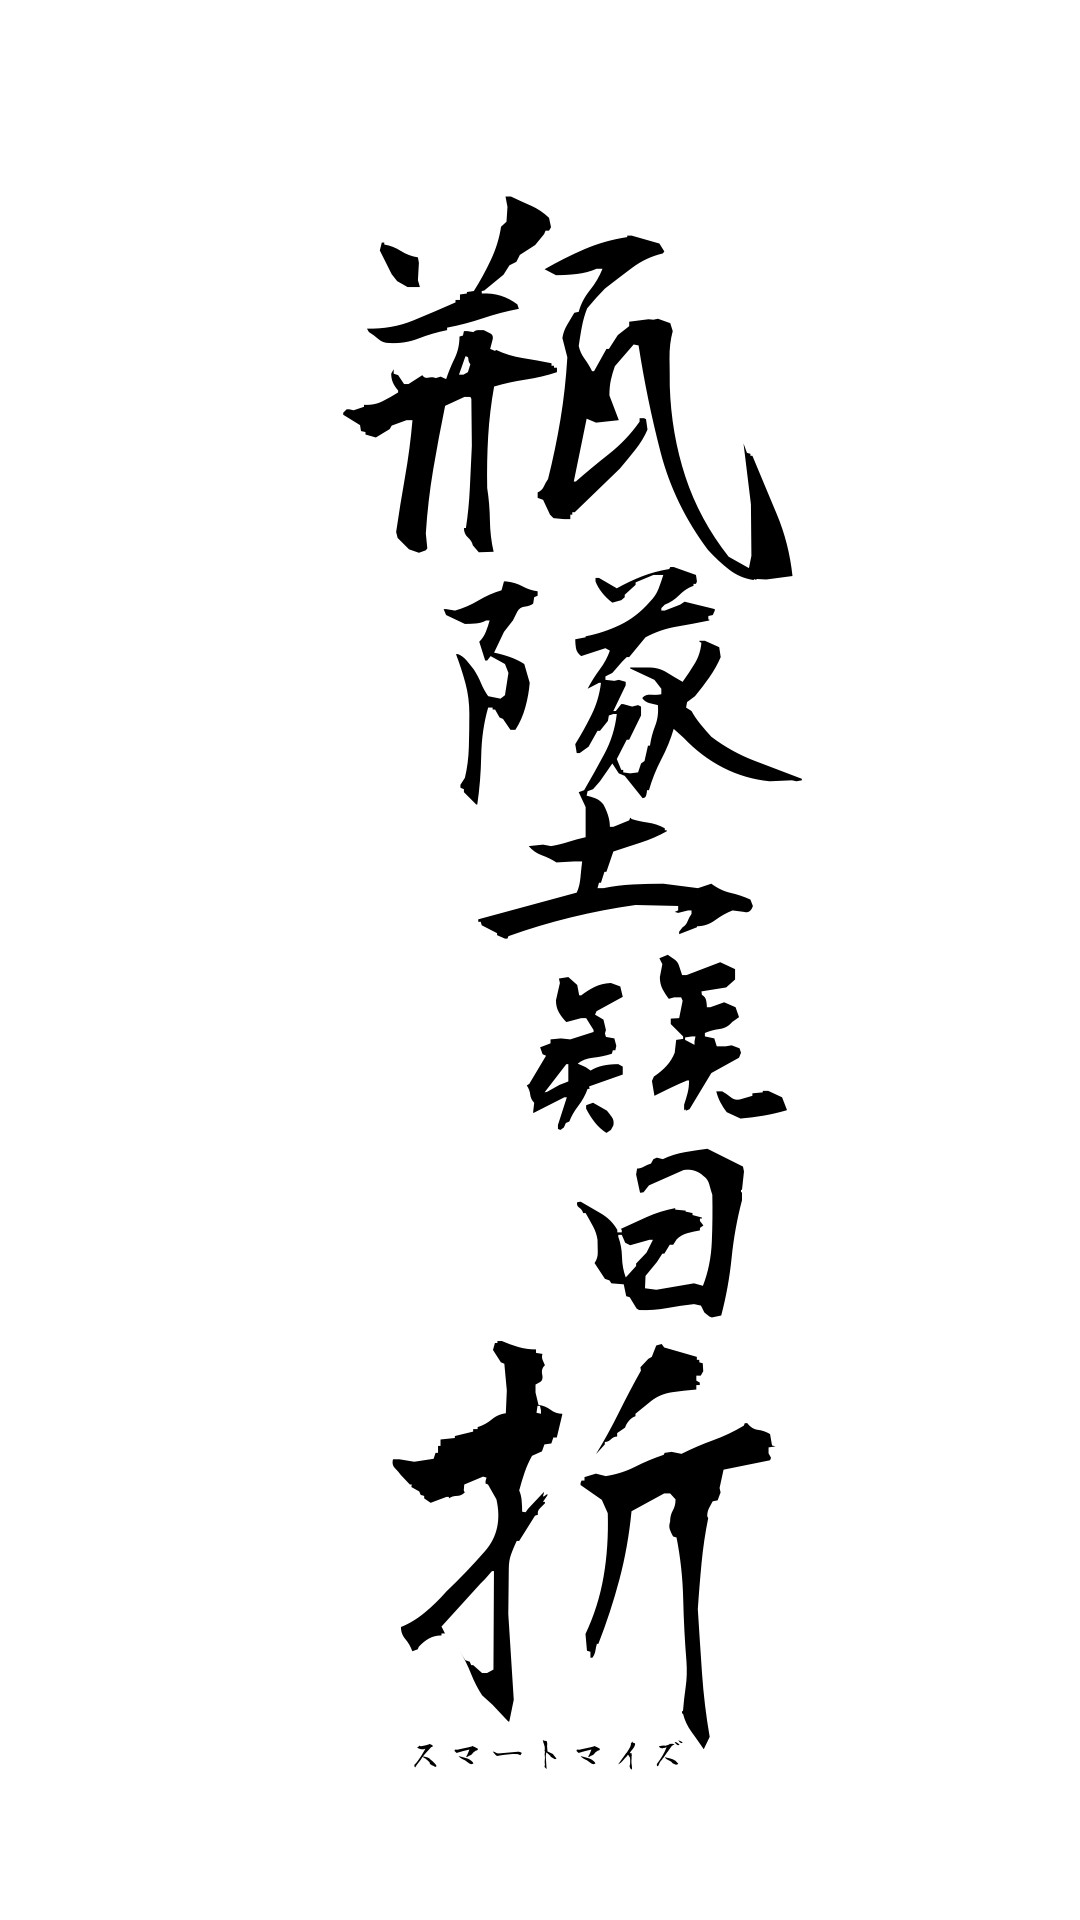 瓶墜簪折
スマートマイズ